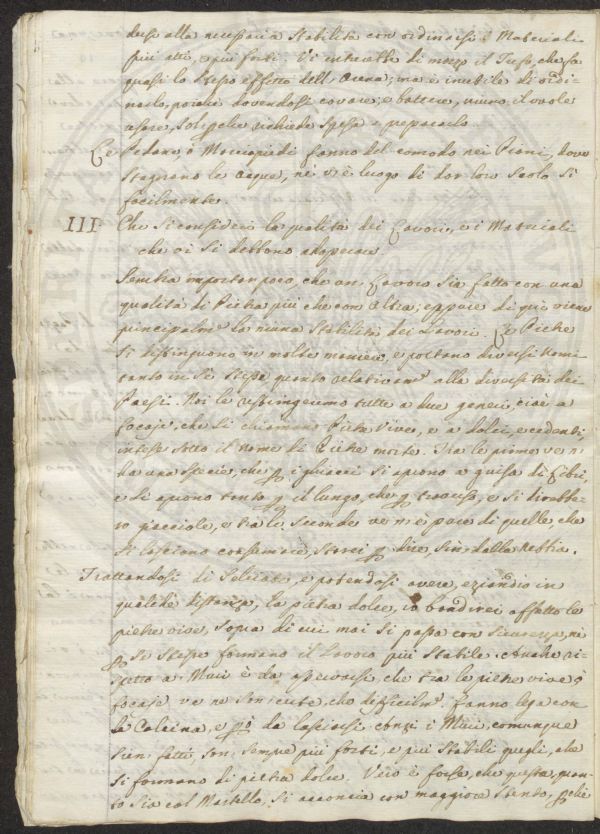 alla necessaria stabilità con ordinarsi i Materiali
più atti, e più forti. Vi entrarebbe di mezzo il Tufo, che fa
quasi lo stesso effetto dell'Arena; ma è inutile di ordi-
narlo, poiche dovendosi cavare, e battere, niuno il vuole
usare, richiede spesa a prepararlo.
Le Pedare, o Marciapiedi fanno del comodo nei Piani, dove
stagnano le Acque, ne vi è luogo di dar loro scolo sì
facilmente.
III. Che si consideri la qualità dei Lavori, e i Materiali
che vi si debbono adoperare.
Sembra importar poco, che un Lavoro sia fatto con una
qualità di Pietra più che con Altra; eppure di quì viene
principalmᵉ la niuna stabilità dei Lavori. Le Pietre
si distinguono in molte maniere, e portano diversi nomi
tanto in se stesse quanto relativamᵉ alla diversità dei
Paesi. Noi le restringeremo tutte a due generi, cioè a
focaje, che si chiamano Pietre Vive, e a dolci, e cedenti,
intese sotto il nome di Pietre morte. Tra le prime ve n'
ha una specie, che p i ghiacci si aprono a guisa di Libri,
e si aprono tanto p il lungo, che p traverso, e si direbbe-
ro giacciole, e tra le seconde ve n'è pare di quelle, che
si lasciano consumare, starei p dire, sin dalla nebbia.
Trattandosi di Selciate, e potendosi avere, eziandio in
qualche distanza, la pietra dolce, io bandirei affatto le
pietre vive, sopra di cui mai si passa con sicurezza, ne
p se stesse formano il Lavoro più stabile. Anche ri-
spetto a Muri è da osservarsi, che tra le pietre vive, o
focaje ve ne son certe, che difficilmᵉ fanno lega con
la Calcina, e pò da lasciarsi i Muri, comunque
sien fatti, son sempre più forti, e più stabili quegli, che
si formano di pietra dolce. Vero è forse, che questa, quan-
to sia col Martello, si acconcia con maggiore stento, pchè